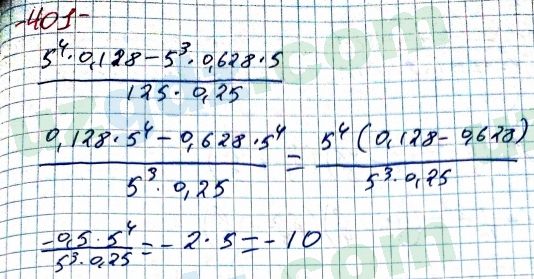 -401-
(5⁴·0,128-5³·0,628·5)/(125·0,25)
(0,128·5⁴-0,628·5⁴)/(5³·0,25) = 5⁴(0,128-0,628)/(5³·0,25)
(-0,5·5⁴)/(5³·0,25) = -2·5 = -10